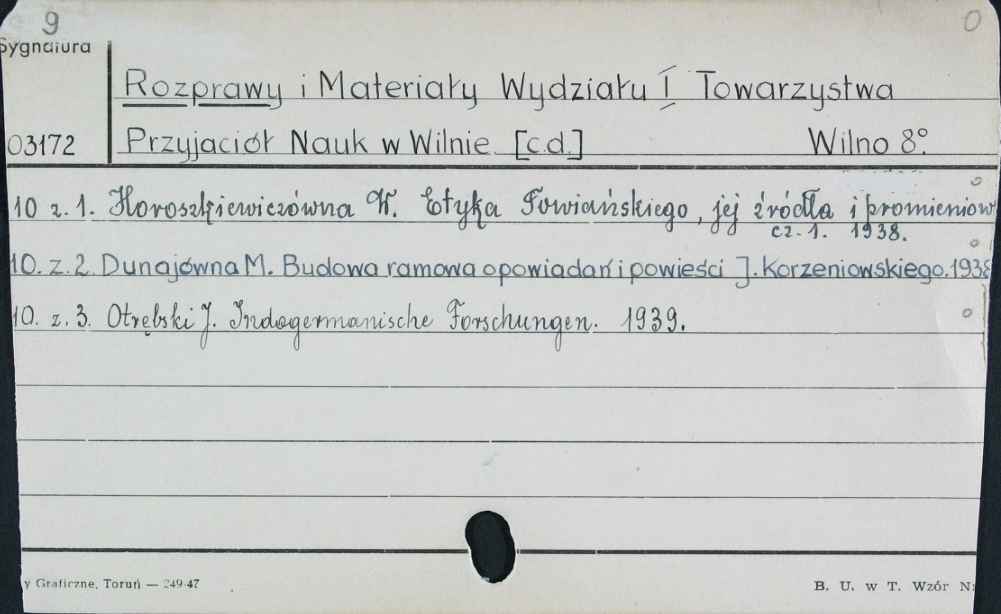 9 0
Sygnatura
Rozprawy i Materiały Wydziału I Towarzystwa
03172 Przyjaciół Nauk w Wilnie [c.d.] Wilno 8°.
10 z. 1. Horoszkiewiczówna W. Etyka Towiańskiego, jej źródła i promieniow
cz. 1. 1938.
10. z. 2. Dunajówna M. Budowa ramowa opowiadań i powieści J. Korzeniowskiego. 1938
10. z. 3. Otrębski J. Indogermanische Forschungen. 1939.
y Graficzne, Toruń — 249-47 B. U. w T. Wzór N